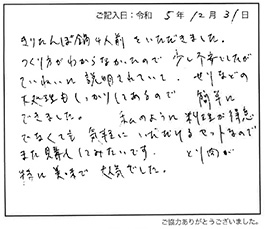 ご記入日：令和 5年12月31日
きりたんぽ鍋4人前をいただきました。
つくり方がわからなかったので少し不安でしたが
ていねいに説明されていて、せりなどの
下処理もしっかりしてあるので簡単に
できました。私のように料理が得意
でなくても気軽にいただけるセットなので
また購入してみたいです。とり肉が
特に美味で
でした。
ご協力ありがとうございました。